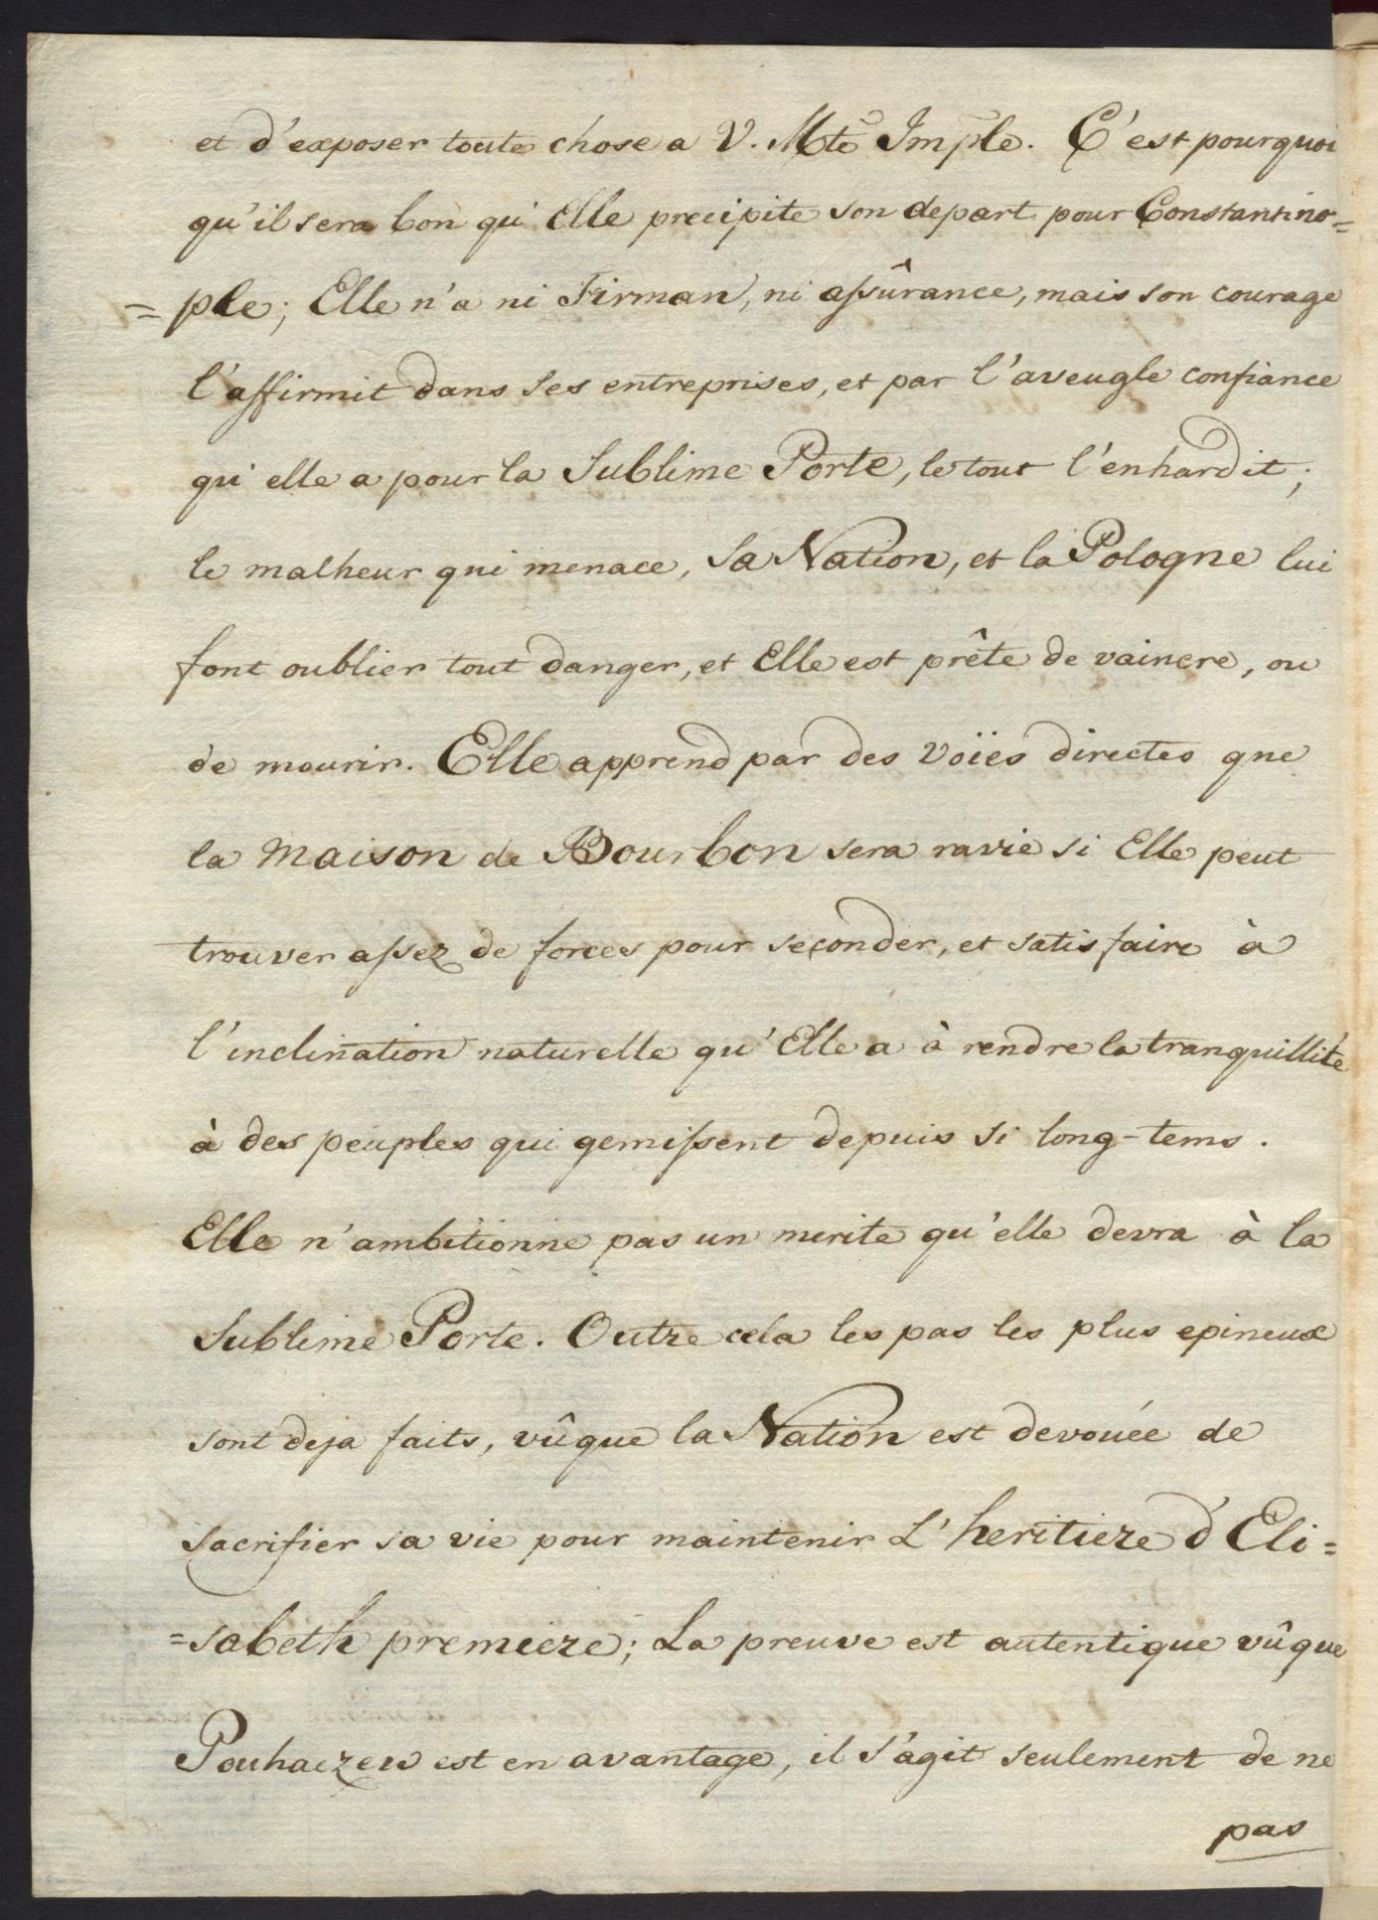 et d'exposer toute chose a V. Mté Imple. C'est pourquoi
qu'il sera bon qu'Elle precipite son depart pour Constantino=
=ple; Elle n'a ni Firman, ni assûrance, mais son courage
l'affirmit dans ses entreprises, et par l'aveugle confiance
qu'elle a pour la Sublime Porte, le tout l'enhardit;
le malheur qui menace, sa Nation, et la Pologne lui
font oublier tout danger, et Elle est prête de vaincre, ou
de mourir. Elle apprend par des voiës directes que
la Maison de Bourbon sera ravie si Elle peut
trouver assez de forces pour seconder, et satisfaire à
l'inclination naturelle qu'Elle a à rendre la tranquillité
à des peuples qui gemissent depuis si long-tems.
Elle n'ambitionne pas un merite qu'elle devra à la
Sublime Porte. Outre cela les pas les plus epineux
sont deja faits, vûque la Nation est devouée de
sacrifier sa vie pour maintenir L'heritiere d'Eli=
=sabeth premiere; La preuve est autentique vûque
Pouhaezew est en avantage, il s'agit seulement de ne
pas